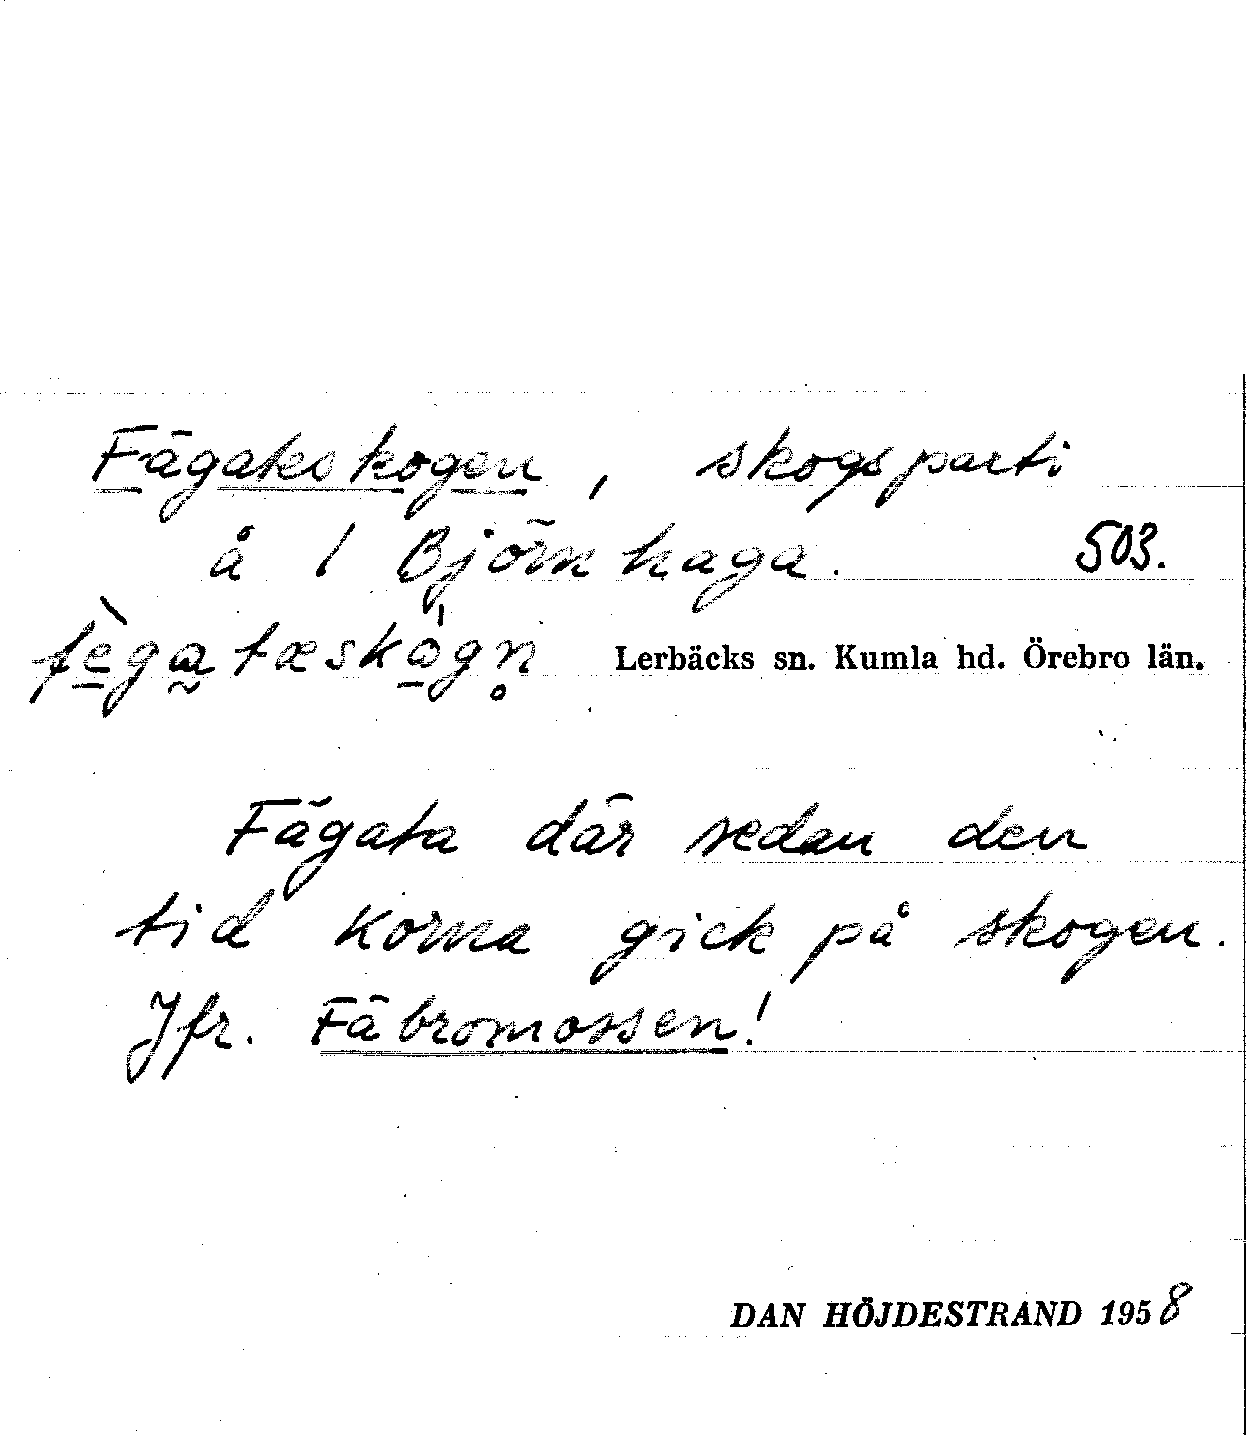 Fägateskogen, skogsparti
å 1 Björnhaga. 503.
fègatæskògn̥ Lerbäcks sn. Kumla hd. Örebro län.
Fägata där sedan den
tid korna gick på skogen.
Jfr. Fäbromossen!
DAN HÖJDESTRAND 1958